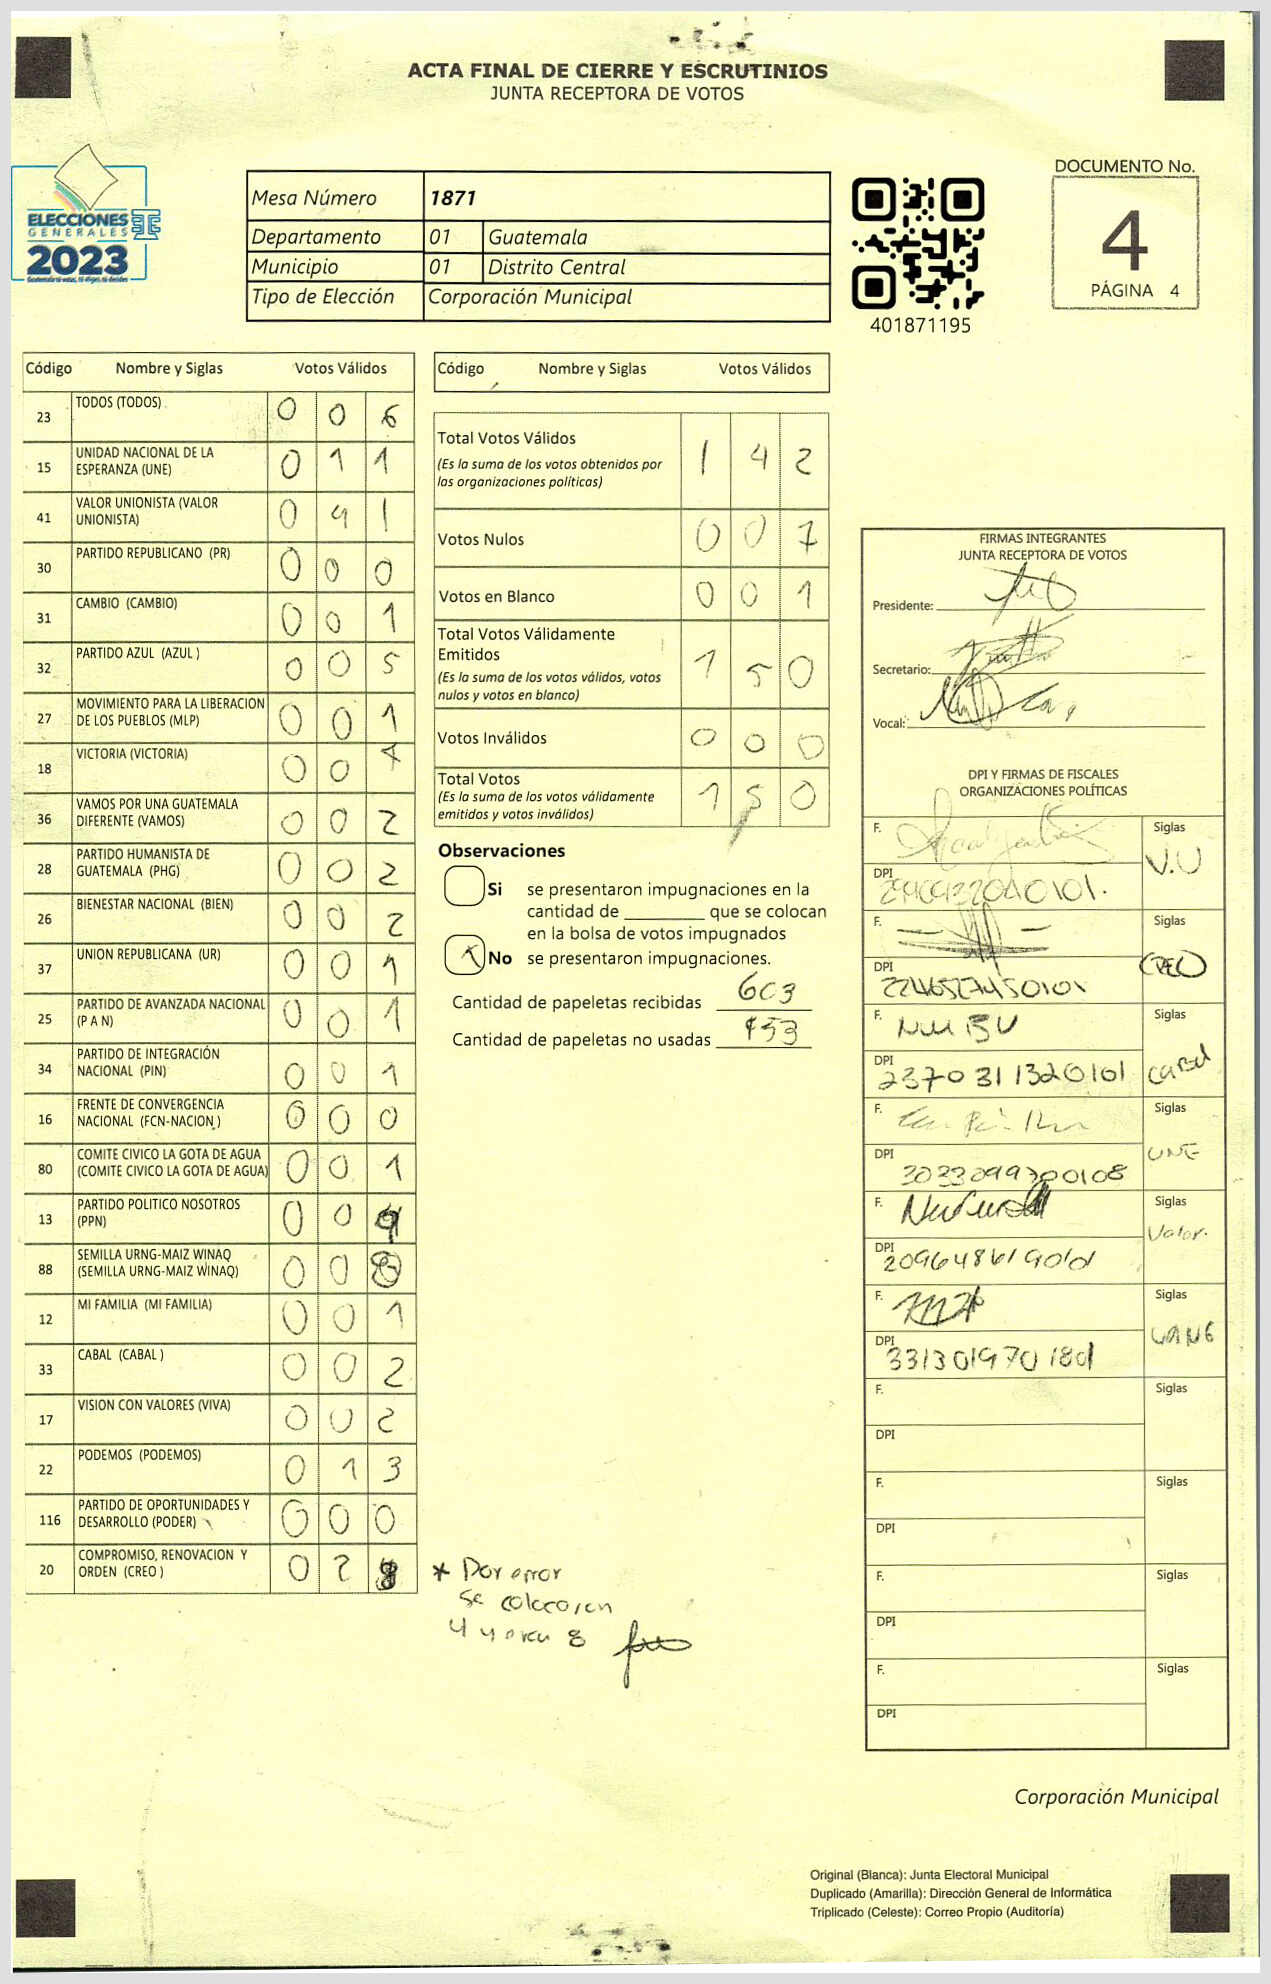 ACTA FINAL DE CIERRE Y ESCRUTINIOS
JUNTA RECEPTORA DE VOTOS
ELECCIONES
GENERALES
2023
Mesa Número 1871
Departamento 01 Guatemala
Municipio 01 Distrito Central
Tipo de Elección Corporación Municipal
401871195
DOCUMENTO No.
4
PÁGINA 4
Código Nombre y Siglas Votos Válidos
23 TODOS (TODOS) 0 0 6
15 UNIDAD NACIONAL DE LA
ESPERANZA (UNE) 0 1 1
41 VALOR UNIONISTA (VALOR
UNIONISTA) 0 4 1
30 PARTIDO REPUBLICANO (PR) 0 0 0
31 CAMBIO (CAMBIO) 0 0 1
32 PARTIDO AZUL (AZUL ) 0 0 5
27 MOVIMIENTO PARA LA LIBERACION
DE LOS PUEBLOS (MLP) 0 0 1
18 VICTORIA (VICTORIA) 0 0 7
36 VAMOS POR UNA GUATEMALA
DIFERENTE (VAMOS) 0 0 2
28 PARTIDO HUMANISTA DE
GUATEMALA (PHG) 0 0 2
26 BIENESTAR NACIONAL (BIEN) 0 0 2
37 UNION REPUBLICANA (UR) 0 0 1
25 PARTIDO DE AVANZADA NACIONAL
(P A N) 0 0 1
34 PARTIDO DE INTEGRACIÓN
NACIONAL (PIN) 0 0 1
16 FRENTE DE CONVERGENCIA
NACIONAL (FCN-NACION ) 0 0 0
80 COMITE CIVICO LA GOTA DE AGUA
(COMITE CIVICO LA GOTA DE AGUA) 0 0 1
13 PARTIDO POLITICO NOSOTROS
(PPN) 0 0
88 SEMILLA URNG-MAIZ WINAQ
(SEMILLA URNG-MAIZ WINAQ) 0 0 8
12 MI FAMILIA (MI FAMILIA) 0 0 1
33 CABAL (CABAL ) 0 0 2
17 VISION CON VALORES (VIVA) 0 0 2
22 PODEMOS (PODEMOS) 0 1 3
116 PARTIDO DE OPORTUNIDADES Y
DESARROLLO (PODER) 0 0 0
20 COMPROMISO, RENOVACION Y
ORDEN (CREO ) 0 2 8
Código Nombre y Siglas Votos Válidos
Total Votos Válidos 1 4 2
(Es la suma de los votos obtenidos por
las organizaciones políticas)
Votos Nulos 0 0 7
Votos en Blanco 0 0 1
Total Votos Válidamente
Emitidos 1 5 0
(Es la suma de los votos válidos, votos
nulos y votos en blanco)
Votos Inválidos 0 0 0
Total Votos 1 5 0
(Es la suma de los votos válidamente
emitidos y votos inválidos)
Observaciones
Si se presentaron impugnaciones en la
cantidad de ________ que se colocan
en la bolsa de votos impugnados
No se presentaron impugnaciones.
Cantidad de papeletas recibidas 603
Cantidad de papeletas no usadas 453
* Por error
se colocaron
4 y 8
FIRMAS INTEGRANTES
JUNTA RECEPTORA DE VOTOS
Presidente:
Secretario:
Vocal:
DPI Y FIRMAS DE FISCALES
ORGANIZACIONES POLÍTICAS
F. Siglas V.U
DPI
F. Siglas CREO
DPI
F. Siglas CABAL
DPI 2370311320101
F. Siglas UNE
DPI 3033099700108
F. Siglas Valor.
DPI
F. Siglas
DPI
F. Siglas
DPI
F. Siglas
DPI
F. Siglas
DPI
F. Siglas
DPI
Corporación Municipal
Original (Blanca): Junta Electoral Municipal
Duplicado (Amarilla): Dirección General de Informática
Triplicado (Celeste): Correo Propio (Auditoría)